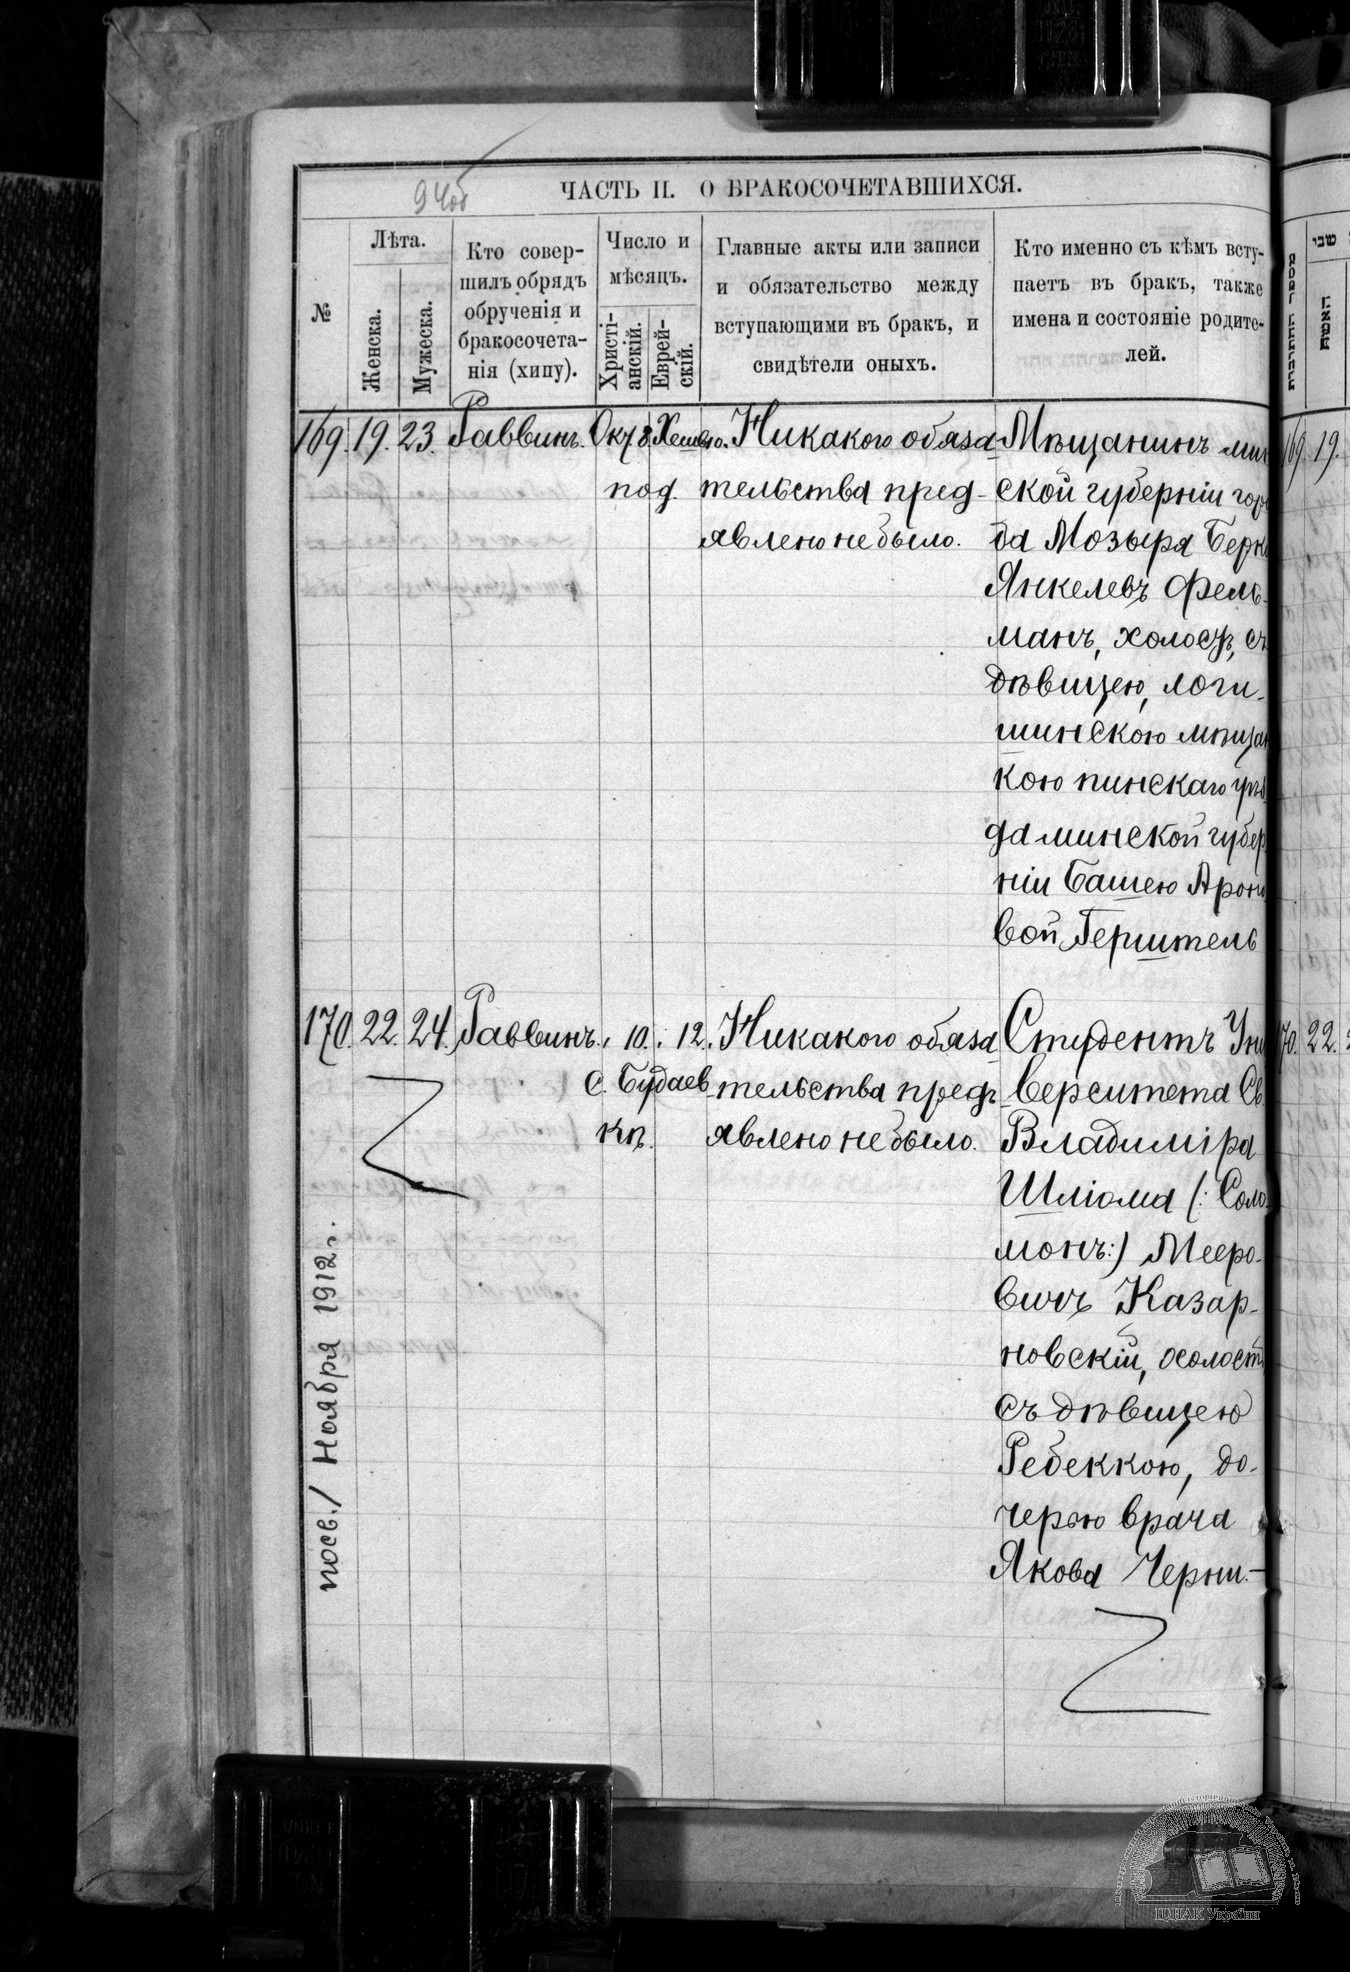 94об
ЧАСТЬ II. О БРАКОСОЧЕТАВШИХСЯ.
№
Лѣта.
Женска.
Мужеска.
Кто совер-
шилъ обрядъ
обрученія и
бракосочета-
нія (хипу).
Число и
мѣсяцъ.
Христі-
анскій.
Еврей-
скій.
Главные акты или записи
и обязательство между
вступающими въ бракъ, и
свидѣтели оныхъ.
Кто именно съ кѣмъ всту-
паетъ въ бракъ, также
имена и состояніе родите-
лей.
169. 19. 23. Раввинъ. Окт 8. Хешв 10.
под.
Никакого обяза-
тельства пред-
явлено не было.
Мѣщанинъ мин
ской губерніи горо
да Мозыря Берко
Янкелевъ Фель-
манъ, холостъ, съ
дѣвицею, логи-
шинскою мѣщан
кою пинскаго уѣз
да минской губер
ніи Башею Ароно
вой Герштель
170. 22. 24. Раввинъ. 10. 12.
с. Будаев
кѣ.
Никакого обяза-
тельства предъ-
явлено не было.
Студентъ Уни
верситета Св.
Владиміра
Шліома (: Соло
монъ:) Мееро-
вичъ Казар-
новскій, холостъ
съ дѣвицею
Ребеккою, до-
черью врача
Якова Черни.-
посв. 1 Ноября 1912 г.
מספר החתונות
שני
האשה
169. 19.
170. 22.
ЦДІАК України